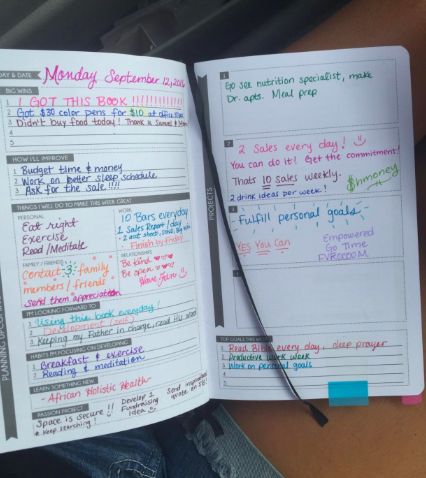 DAY & DATE
Monday September 12,
BIG WINS
1 I GOT THIS BOOK !!!!!!!!!!!!!
2 Got $30 color pens for $10 at office
3 Didn't buy food today! Thank u Samuel &
4
5
HOW I'LL IMPROVE
1 Budget time & money
2 Work on better sleep schedule
3 Ask for the sale!!!!
THINGS I WILL DO TO MAKE THIS WEEK GREAT
PERSONAL
Eat right
Exercise
Read/Meditate
WORK
10 Bars everyday
1 Sales Report / day
Finish by Friday
FAMILY / FRIENDS
Contact 3 family
members / friends
Send them appreciation
RELATIONSHIPS
Be kind
Be open
Have Fun
I'M LOOKING FORWARD TO
1 Using this book everyday!
2 Development
3 Keeping my Father in charge, read His word
HABITS I'M FOCUSING ON DEVELOPING
1 Breakfast & exercise
2 Reading & meditation
LEARN SOMETHING NEW
- African Holistic Health
PASSION PROJECT
Space is secure!!
Keep searching!
Develop 2
Fundraising
idea
Send
quote on
PLANNING
PROJECTS
1
Go see nutrition specialist, make
Dr. apts. Meal prep
2
2 Sales every day!
You can do it! Get the commitment!
Thats 10 Sales weekly.
2 drink ideas per week!
$hmoney
3
Fulfill personal goals
Yes You Can
Empowered
Go Time
4
TOP GOALS THIS
1 Read Bible every day, prayer
2 Productive work week
3 Work on personal goals
4
5